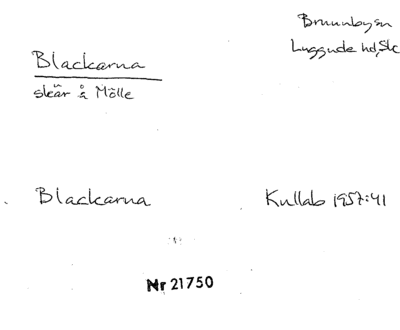 Brunnbysn
Luggude hd, Sk
Blackarna
skär å Mölle
Blackarna
Kullab 1957:41
Nr 21750